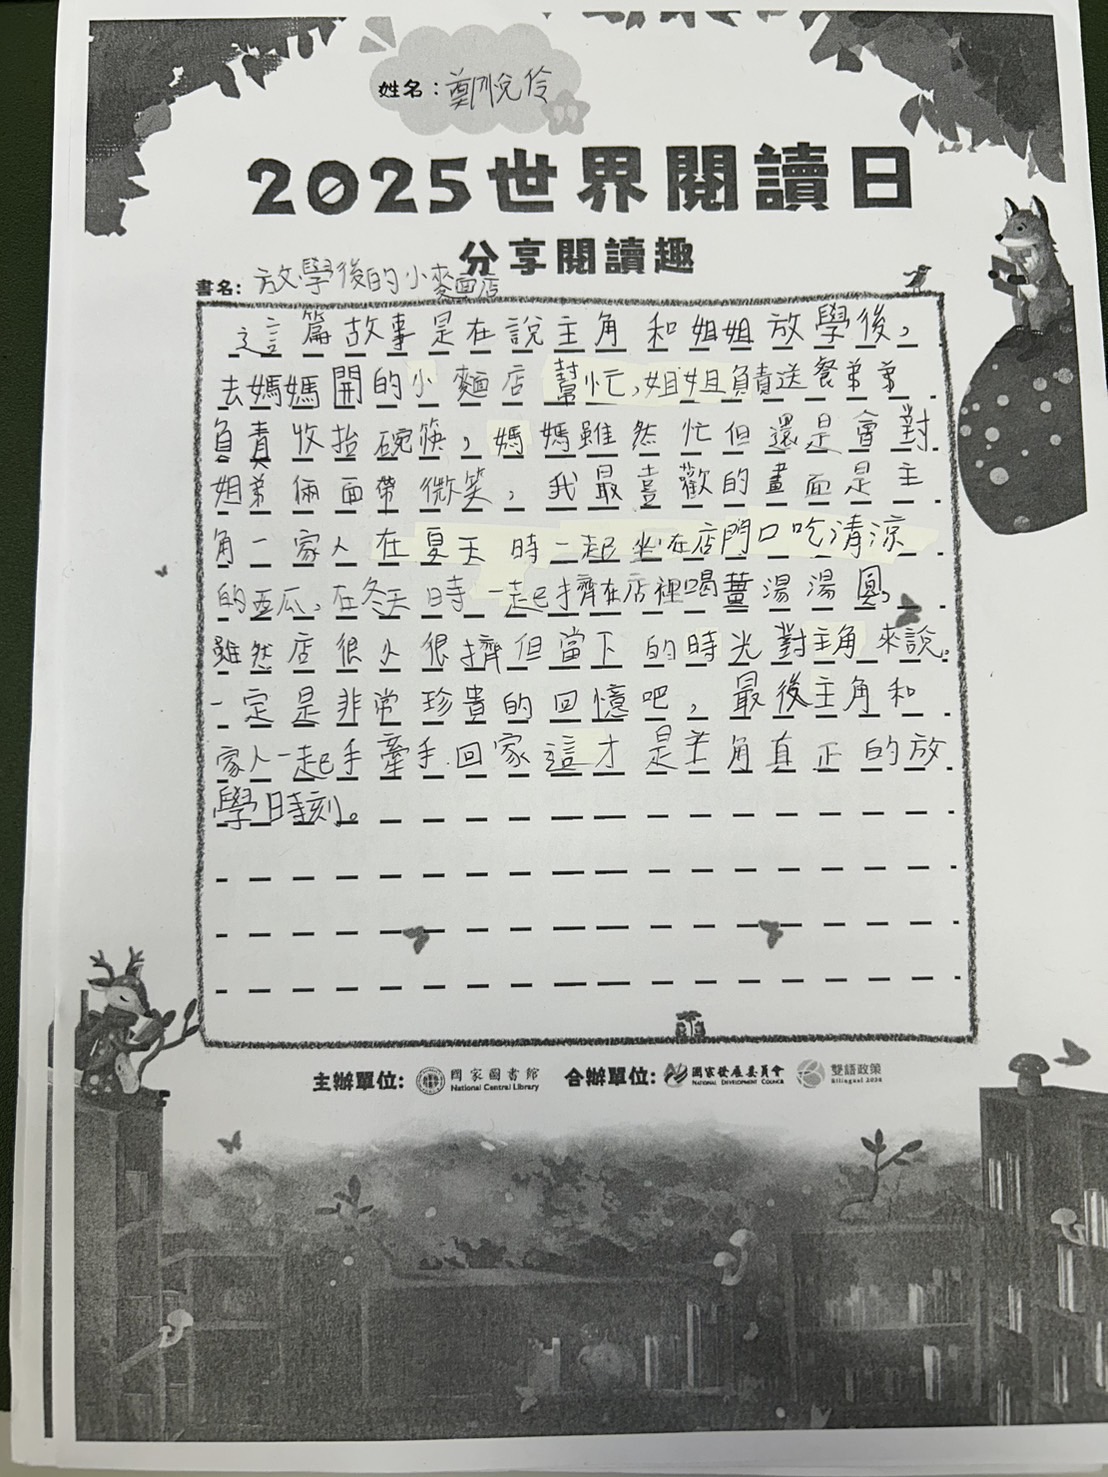 姓名：鄭悅伶
2025世界閱讀日
分享閱讀趣
書名：放學後的小麥面店
這篇故事是在說主角和姐姐放學後，
去媽媽開的小麵店幫忙，姐姐負責送餐弟弟
負責收拾碗筷，媽媽雖然忙但還是會對
姐弟倆面帶微笑，我最喜歡的畫面是主
角一家人在夏天時一起坐在店門口吃清涼
的西瓜，在冬天時一起擠在店裡喝薑湯湯圓，
雖然店很小很擠但當下的時光對主角來說，
一定是非常珍貴的回憶吧，最後主角和
家人一起手牽手回家這才是主角真正的放
學時刻。
主辦單位：國家圖書館 National Central Library 合辦單位：國家發展委員會 NATIONAL DEVELOPMENT COUNCIL 雙語政策 Bilingual 2030